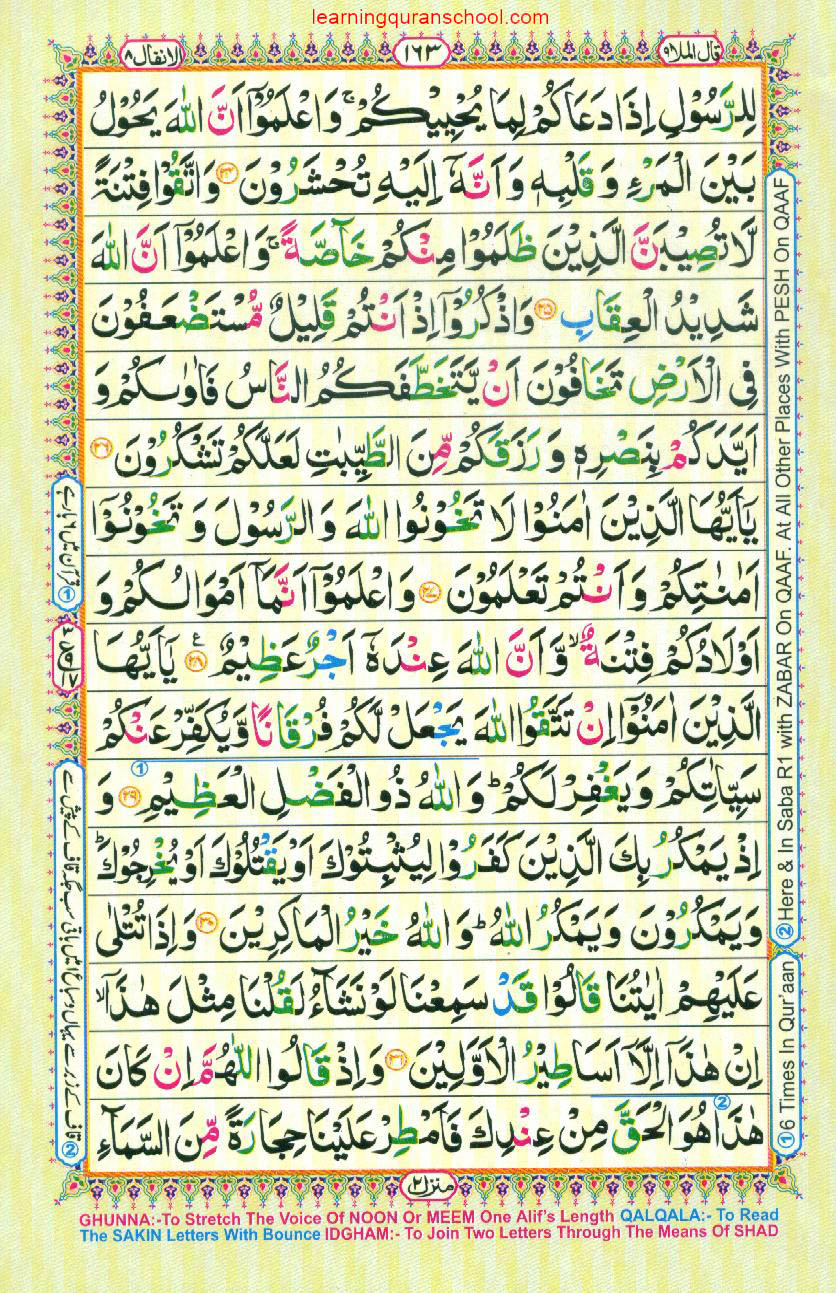 learningquranschool.com
قال الملا٩
١٦٣
الانفال٨
لِلرَّسُوْلِ اِذَا دَعَاكُمْ لِمَا يُحْيِيْكُمْ ۚ وَاعْلَمُوْۤا اَنَّ اللّٰهَ يَحُوْلُ
بَيْنَ الْمَرْءِ وَ قَلْبِهٖ وَ اَنَّهٗۤ اِلَيْهِ تُحْشَرُوْنَ ۝۲۴ وَاتَّقُوْا فِتْنَةً
لَّا تُصِيْبَنَّ الَّذِيْنَ ظَلَمُوْا مِنْكُمْ خَآصَّةً ۚ وَاعْلَمُوْۤا اَنَّ اللّٰهَ
شَدِيْدُ الْعِقَابِ ۝۲۵ وَاذْكُرُوْۤا اِذْ اَنْتُمْ قَلِيْلٌ مُّسْتَضْعَفُوْنَ
فِى الْاَرْضِ تَخَافُوْنَ اَنْ يَّتَخَطَّفَكُمُ النَّاسُ فَاٰوٰىكُمْ وَ
اَيَّدَكُمْ بِنَصْرِهٖ وَ رَزَقَكُمْ مِّنَ الطَّيِّبٰتِ لَعَلَّكُمْ تَشْكُرُوْنَ ۝۲۶
يٰۤاَيُّهَا الَّذِيْنَ اٰمَنُوْا لَا تَخُوْنُوا اللّٰهَ وَ الرَّسُوْلَ وَ تَخُوْنُوْۤا
اَمٰنٰتِكُمْ وَ اَنْتُمْ تَعْلَمُوْنَ ۝۲۷ وَ اعْلَمُوْۤا اَنَّمَاۤ اَمْوَالُكُمْ وَ
اَوْلَادُكُمْ فِتْنَةٌ ۙ وَّ اَنَّ اللّٰهَ عِنْدَهٗۤ اَجْرٌ عَظِيْمٌ ۝۲۸ ع يٰۤاَيُّهَا
الَّذِيْنَ اٰمَنُوْۤا اِنْ تَتَّقُوا اللّٰهَ يَجْعَلْ لَّكُمْ فُرْقَانًا وَّيُكَفِّرْ عَنْكُمْ
①
سَيِّاٰتِكُمْ وَ يَغْفِرْ لَكُمْ ؕ وَ اللّٰهُ ذُو الْفَضْلِ الْعَظِيْمِ ۝۲۹ وَ
اِذْ يَمْكُرُ بِكَ الَّذِيْنَ كَفَرُوْا لِيُثْبِتُوْكَ اَوْ يَقْتُلُوْكَ اَوْ يُخْرِجُوْكَ ؕ
وَ يَمْكُرُوْنَ وَ يَمْكُرُ اللّٰهُ ؕ وَ اللّٰهُ خَيْرُ الْمَاكِرِيْنَ ۝۳۰ وَ اِذَا تُتْلٰى
عَلَيْهِمْ اٰيٰتُنَا قَالُوْا قَدْ سَمِعْنَا لَوْ نَشَآءُ لَقُلْنَا مِثْلَ هٰذَاۤ ۙ
اِنْ هٰذَاۤ اِلَّاۤ اَسَاطِيْرُ الْاَوَّلِيْنَ ۝۳۱ وَ اِذْ قَالُوا اللّٰهُمَّ اِنْ كَانَ
②
هٰذَا هُوَ الْحَقَّ مِنْ عِنْدِكَ فَاَمْطِرْ عَلَيْنَا حِجَارَةً مِّنَ السَّمَآءِ
منزل٢
② Here & In Saba R1 with ZABAR On QAAF. At All Other Places With PESH On QAAF
① 6 Times In Qur'aan
① قرآن میں ٦ بارے
GHUNNA:-To Stretch The Voice Of NOON Or MEEM One Alif's Length QALQALA:- To Read
The SAKIN Letters With Bounce IDGHAM:- To Join Two Letters Through The Means Of SHAD